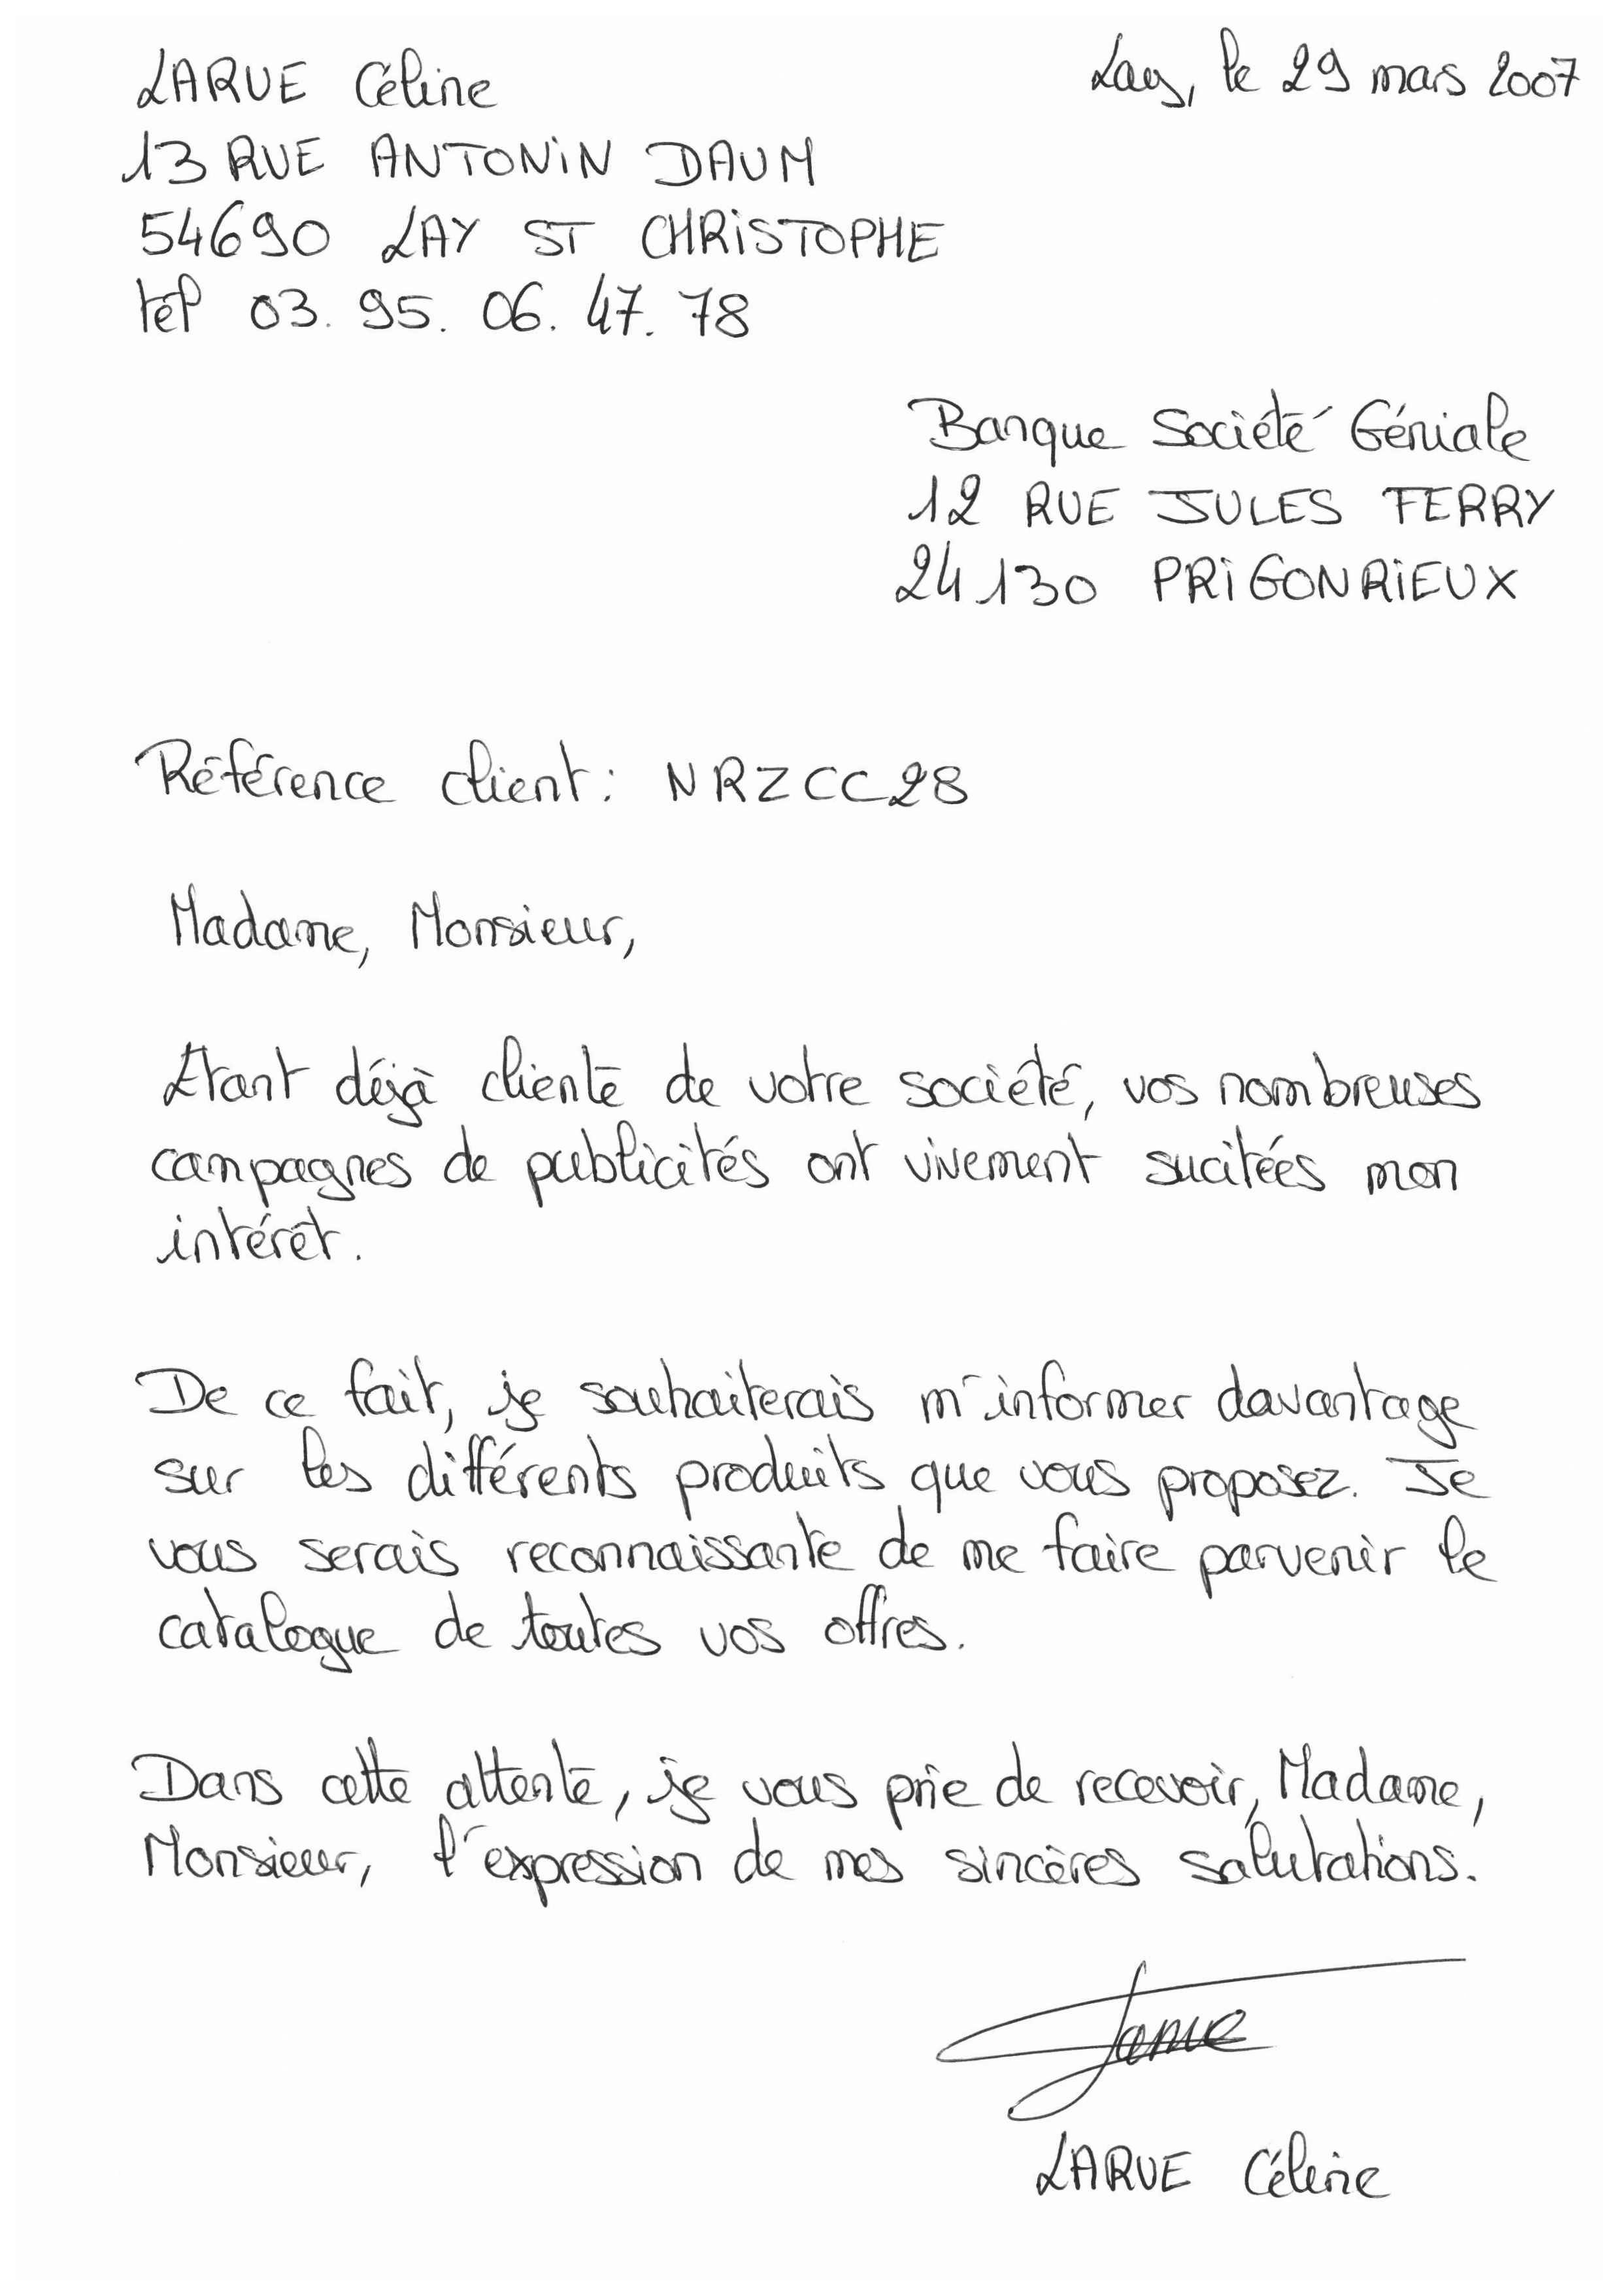 LARUE Céline
Lay, le 29 mars 2007
13 RUE ANTONIN DAUM
54690 LAY ST CHRISTOPHE
tél 03. 95. 06. 47. 78
Banque Société Géniale
12 RUE JULES FERRY
24130 PRIGONRIEUX
Référence client : NRZCC28
Madame, Monsieur,
Etant déjà cliente de votre société, vos nombreuses
campagnes de publicités ont vivement sucitées mon
intérêt.
De ce fait, je souhaiterais m'informer davantage
sur les différents produits que vous proposez. Je
vous serais reconnaissante de me faire parvenir le
catalogue de toutes vos offres.
Dans cette attente, je vous prie de recevoir, Madame,
Monsieur, l'expression de mes sincères salutations.
Larue
LARUE Céline